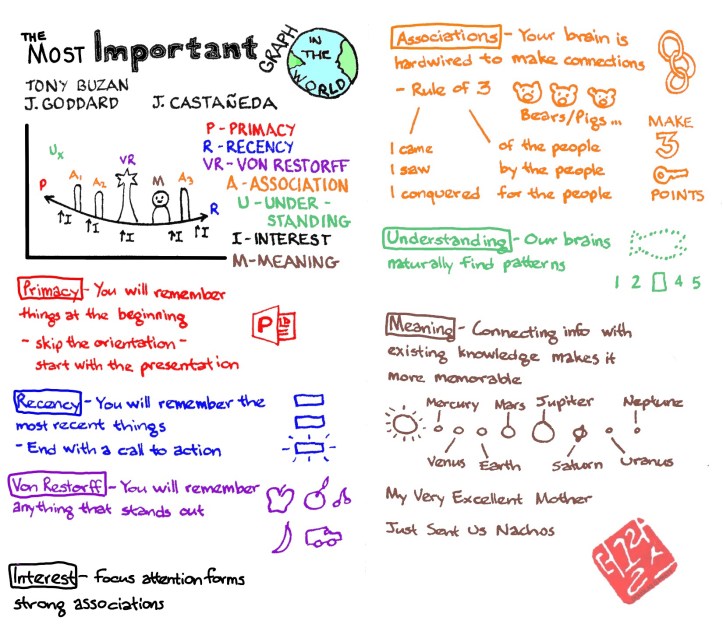 THE
MOST Important GRAPH IN THE WORLD
TONY BUZAN
J. GODDARD J. CASTAÑEDA
P - PRIMACY
R - RECENCY
VR - VON RESTORFF
A - ASSOCIATION
U - UNDER -
STANDING
I - INTEREST
M - MEANING
Ux
VR
P A1 A2 M A3 R
↑I ↑I ↑I ↑I ↑I
Primacy - You will remember
things at the beginning
- skip the orientation -
start with the presentation
P
Recency - You will remember the
most recent things
- End with a call to action
Von Restorff - You will remember
anything that stands out
Interest - focus attention forms
strong associations
Associations - Your brain is
hardwired to make connections
- Rule of 3
Bears/Pigs ...
I came of the people
I saw by the people
I conquered for the people
MAKE
3
POINTS
Understanding - Our brains
naturally find patterns
1 2 4 5
Meaning - Connecting info with
existing knowledge makes it
more memorable
Mercury Mars Jupiter Neptune
Venus Earth Saturn Uranus
My Very Excellent Mother
Just Sent Us Nachos